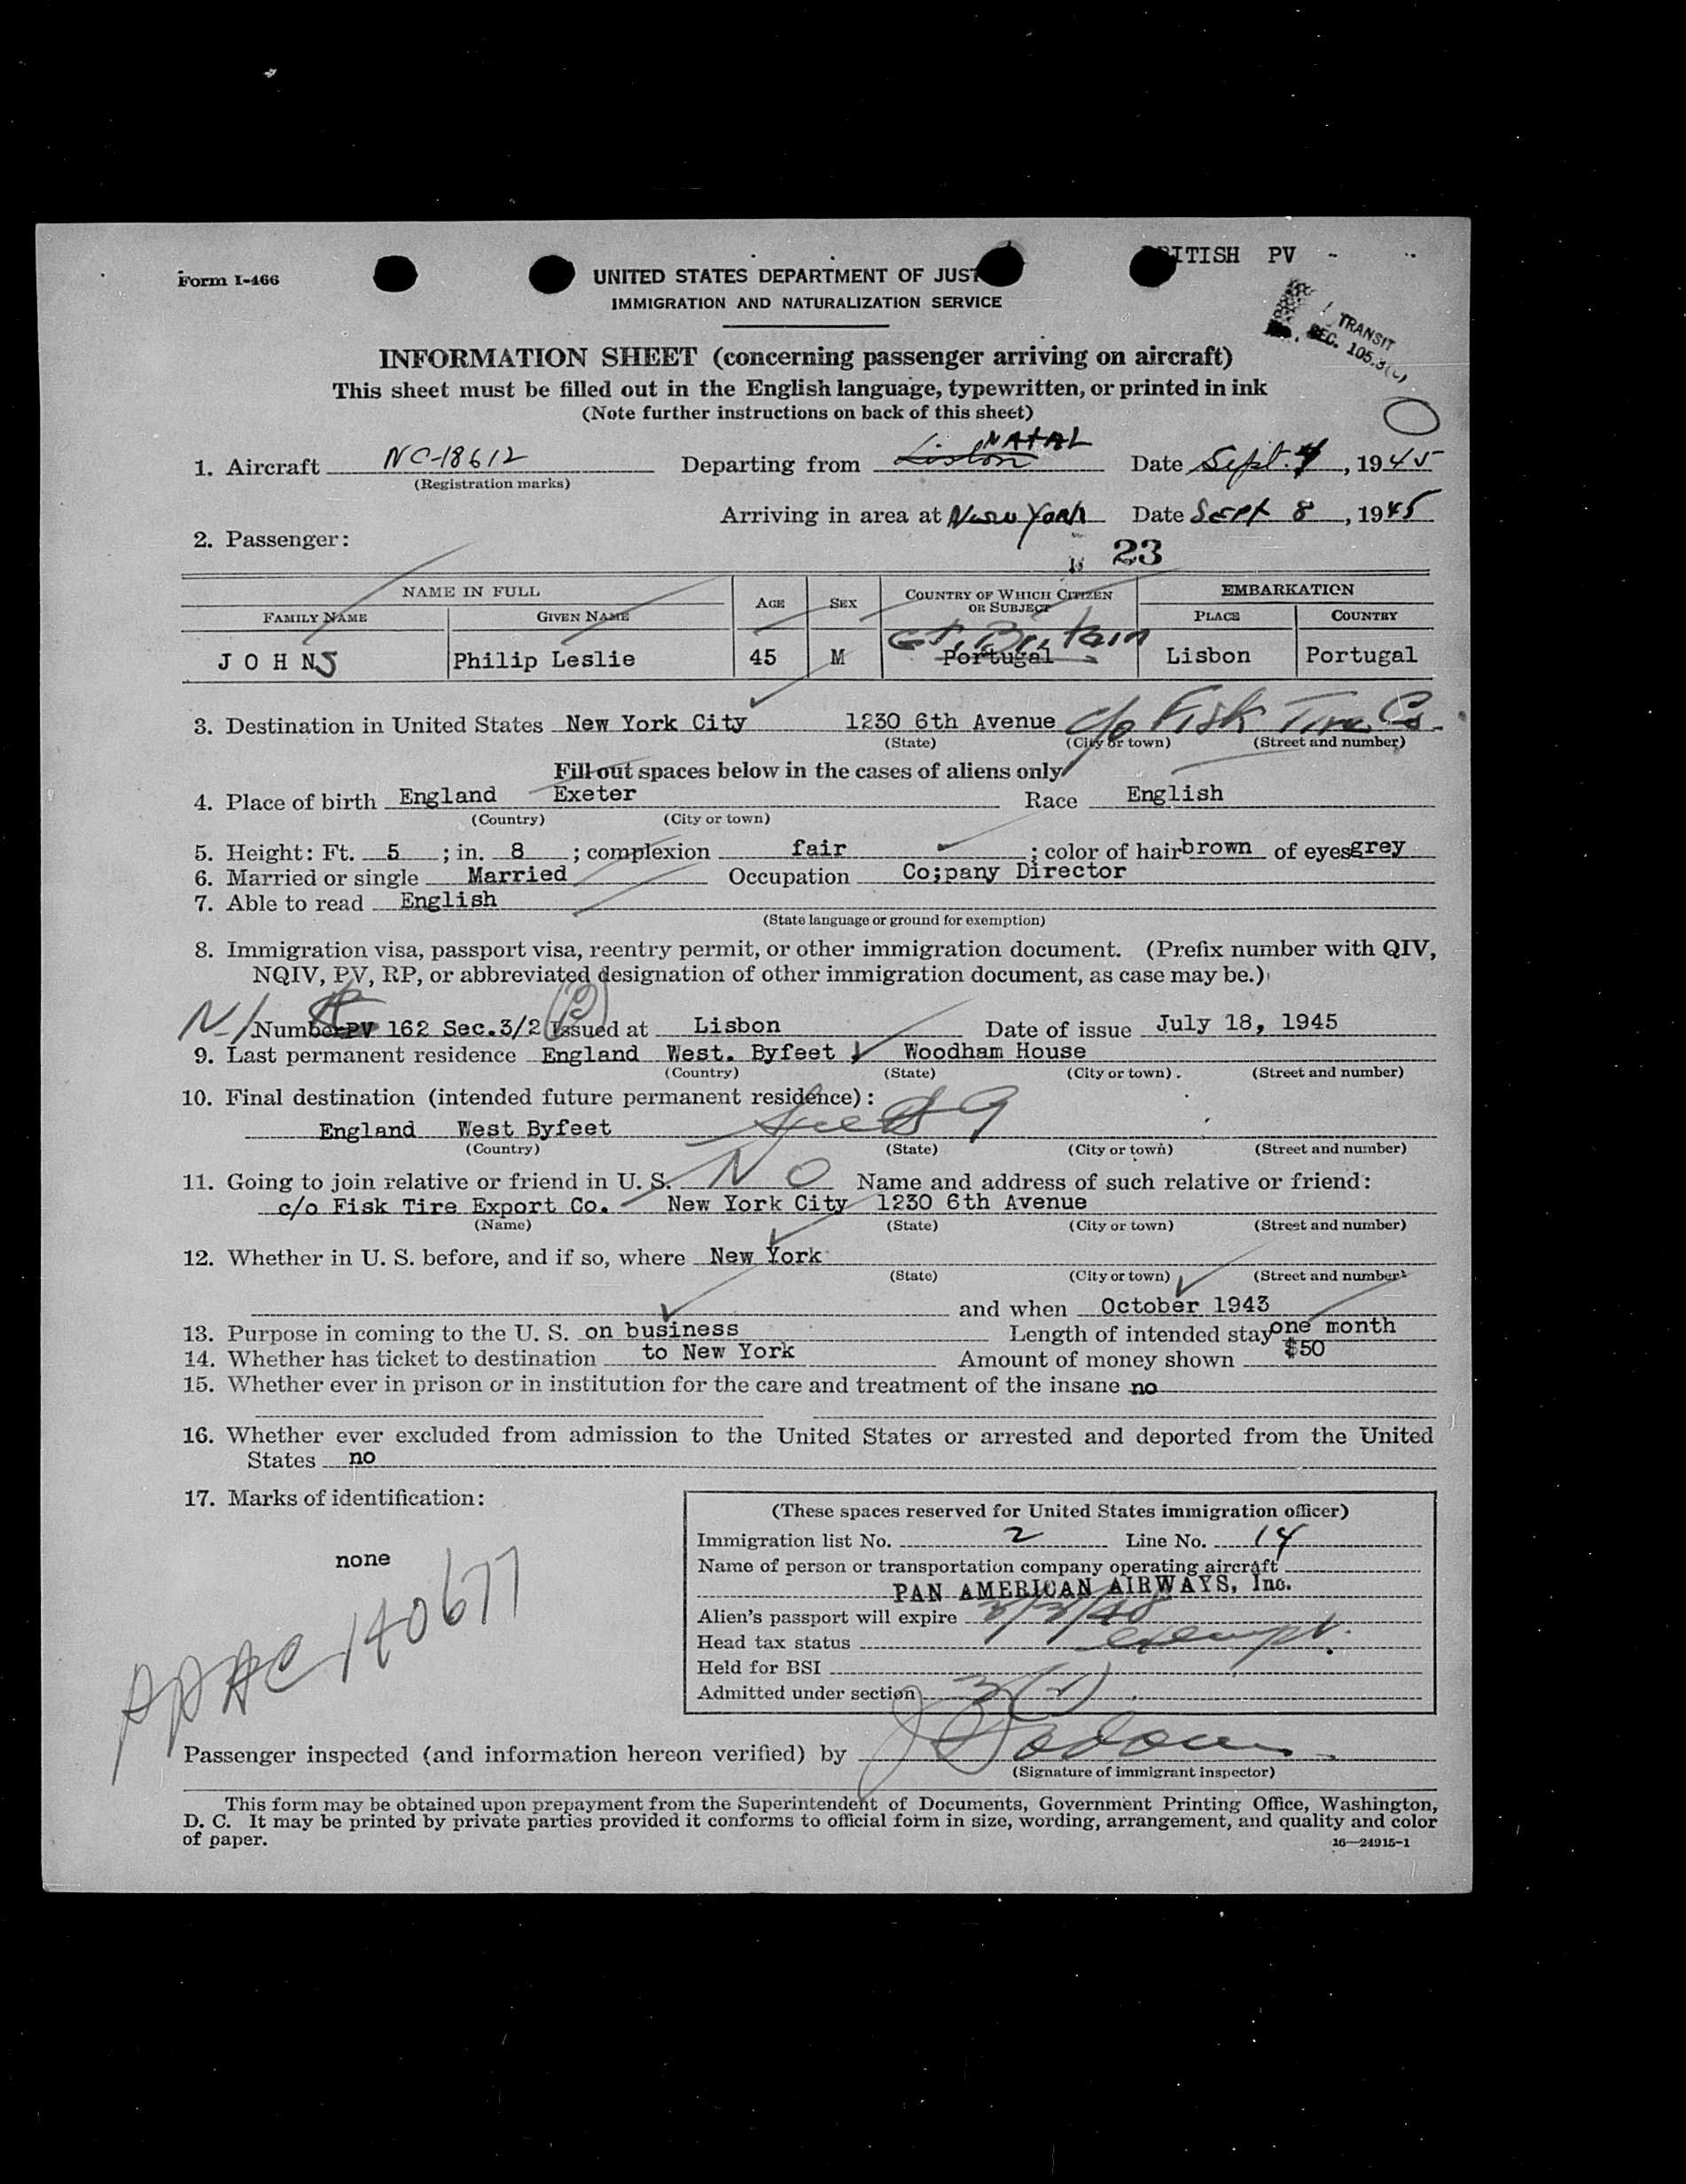 BRITISH PV -
Form I-466
UNITED STATES DEPARTMENT OF JUST
IMMIGRATION AND NATURALIZATION SERVICE
TRANSIT
SEC. 105.3(c)
INFORMATION SHEET (concerning passenger arriving on aircraft)
This sheet must be filled out in the English language, typewritten, or printed in ink
(Note further instructions on back of this sheet)
1. Aircraft NC-18612 Departing from Lisbon NATAL Date Sept. 4, 1945
(Registration marks)
Arriving in area at New York Date SEPT 8, 1945
2. Passenger:
23
NAME IN FULL AGE SEX COUNTRY OF WHICH CITIZEN OR SUBJECT EMBARKATION
FAMILY NAME GIVEN NAME PLACE COUNTRY
Gt. Britain
J O H N S Philip Leslie 45 M Portugal Lisbon Portugal
3. Destination in United States New York City 1230 6th Avenue c/o Fisk Tire Co.
(State) (City or town) (Street and number)
Fill out spaces below in the cases of aliens only
4. Place of birth England Exeter Race English
(Country) (City or town)
5. Height: Ft. 5; in. 8; complexion fair; color of hair brown of eyes grey
6. Married or single Married Occupation Co;pany Director
7. Able to read English
(State language or ground for exemption)
8. Immigration visa, passport visa, reentry permit, or other immigration document. (Prefix number with QIV,
NQIV, PV, RP, or abbreviated designation of other immigration document, as case may be.)
Number PV 162 Sec.3/2 Issued at Lisbon Date of issue July 18, 1945
9. Last permanent residence England West. Byfeet Woodham House
(Country) (State) (City or town) (Street and number)
10. Final destination (intended future permanent residence):
England West Byfeet See # 9
(Country) (State) (City or town) (Street and number)
11. Going to join relative or friend in U. S. NO Name and address of such relative or friend:
c/o Fisk Tire Export Co. New York City 1230 6th Avenue
(Name) (State) (City or town) (Street and number)
12. Whether in U. S. before, and if so, where New York
(State) (City or town) (Street and number)
and when October 1943
13. Purpose in coming to the U. S. on business Length of intended stay one month
14. Whether has ticket to destination to New York Amount of money shown $50
15. Whether ever in prison or in institution for the care and treatment of the insane no
16. Whether ever excluded from admission to the United States or arrested and deported from the United
States no
17. Marks of identification:
none
(These spaces reserved for United States immigration officer)
Immigration list No. 2 Line No. 14
Name of person or transportation company operating aircraft
PAN AMERICAN AIRWAYS, Inc.
Alien's passport will expire 3/3/48
Head tax status exempt.
Held for BSI
Admitted under section 3(2)
140677
Passenger inspected (and information hereon verified) by
(Signature of immigrant inspector)
This form may be obtained upon prepayment from the Superintendent of Documents, Government Printing Office, Washington,
D. C. It may be printed by private parties provided it conforms to official form in size, wording, arrangement, and quality and color
of paper.
16—24915-1